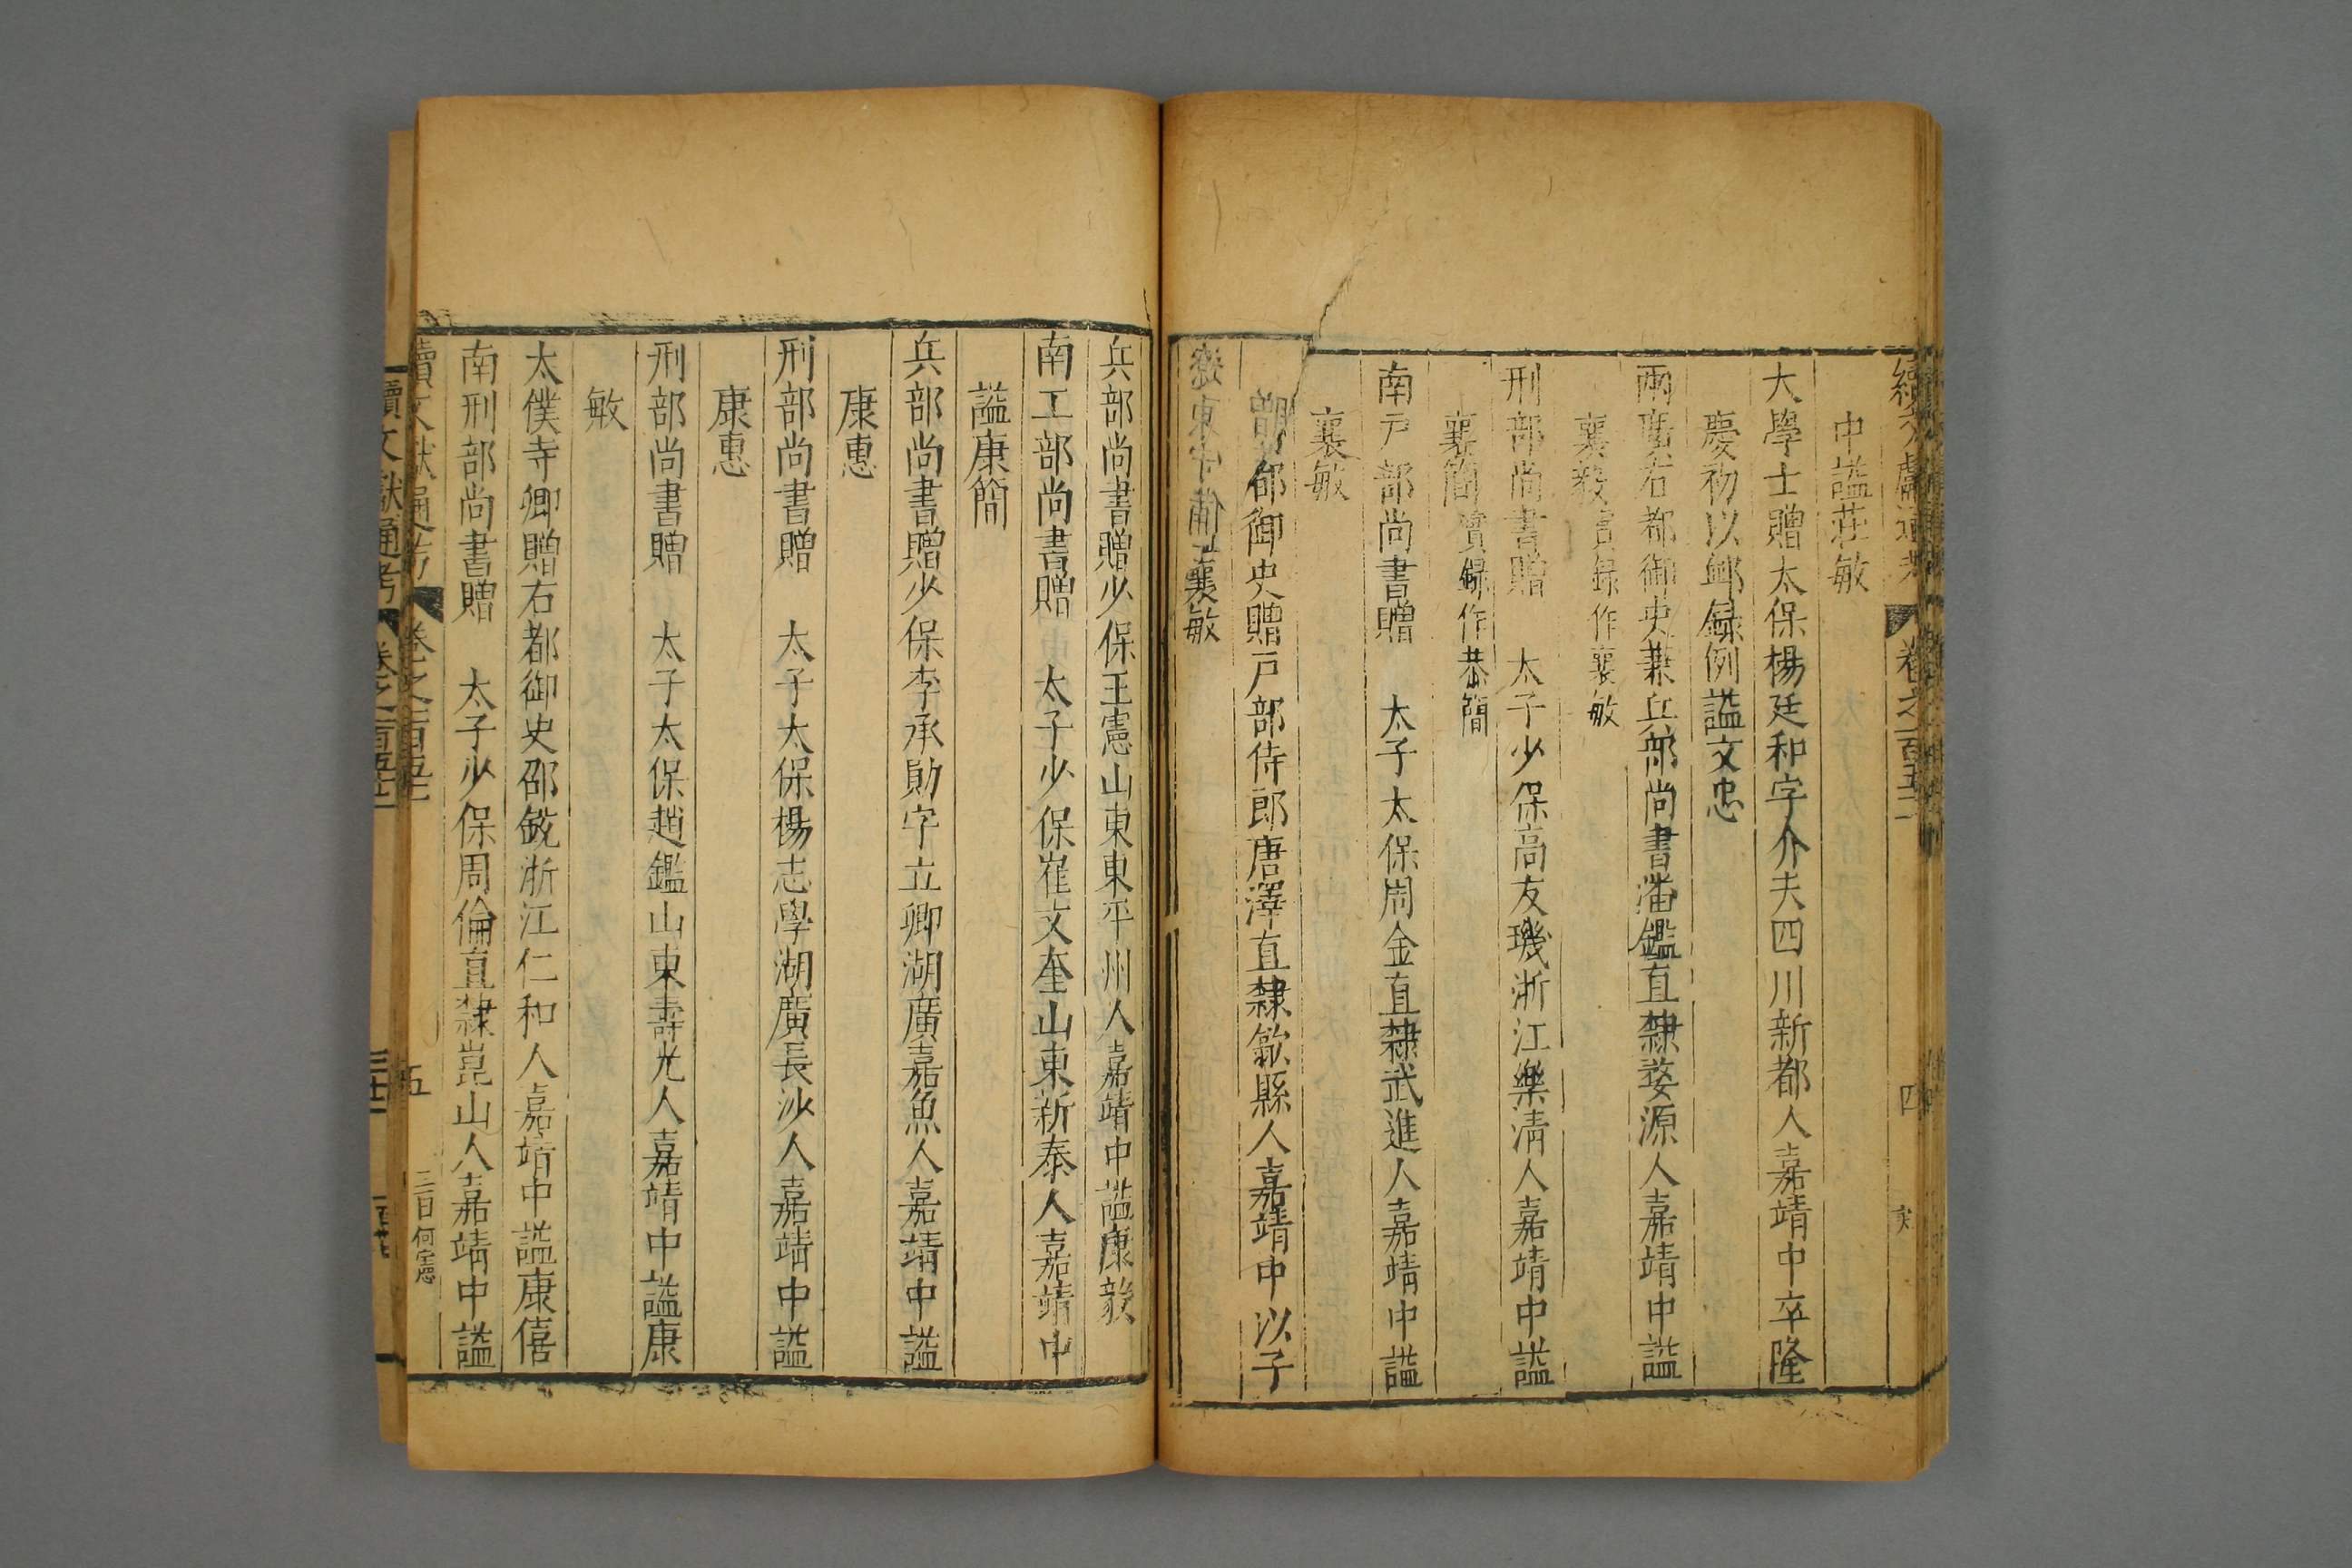 續文獻通考 卷之一百五十一 四
中諡莊敏
大學士贈太保楊廷和字介夫四川新都人嘉靖中卒隆
慶初以䘏録例諡文忠
兩廣右都御史兼兵部尚書潘鑑直隸婺源人嘉靖中諡
襄毅實録作襄敏
刑部尚書贈 太子少保高友璣浙江樂清人嘉靖中諡
襄簡實録作恭簡
南戸部尚書贈 太子太保周金直隸武進人嘉靖中諡
襄敏
都御史贈戸部侍郎唐澤直隸歙縣人嘉靖中以子
襄敏
兵部尚書贈少保王憲山東東平州人嘉靖中諡康毅
南工部尚書贈 太子少保崔文奎山東新泰人嘉靖中
諡康簡
兵部尚書贈少保李承勛字立卿湖廣嘉魚人嘉靖中諡
康惠
刑部尚書贈 太子太保楊志學湖廣長沙人嘉靖中諡
康惠
刑部尚書贈 太子太保趙鑑山東壽光人嘉靖中諡康
敏
太僕寺卿贈右都御史邵鋭浙江仁和人嘉靖中諡康僖
南刑部尚書贈 太子少保周倫直隸崑山人嘉靖中諡
續文獻通考 卷之一百五十一 五